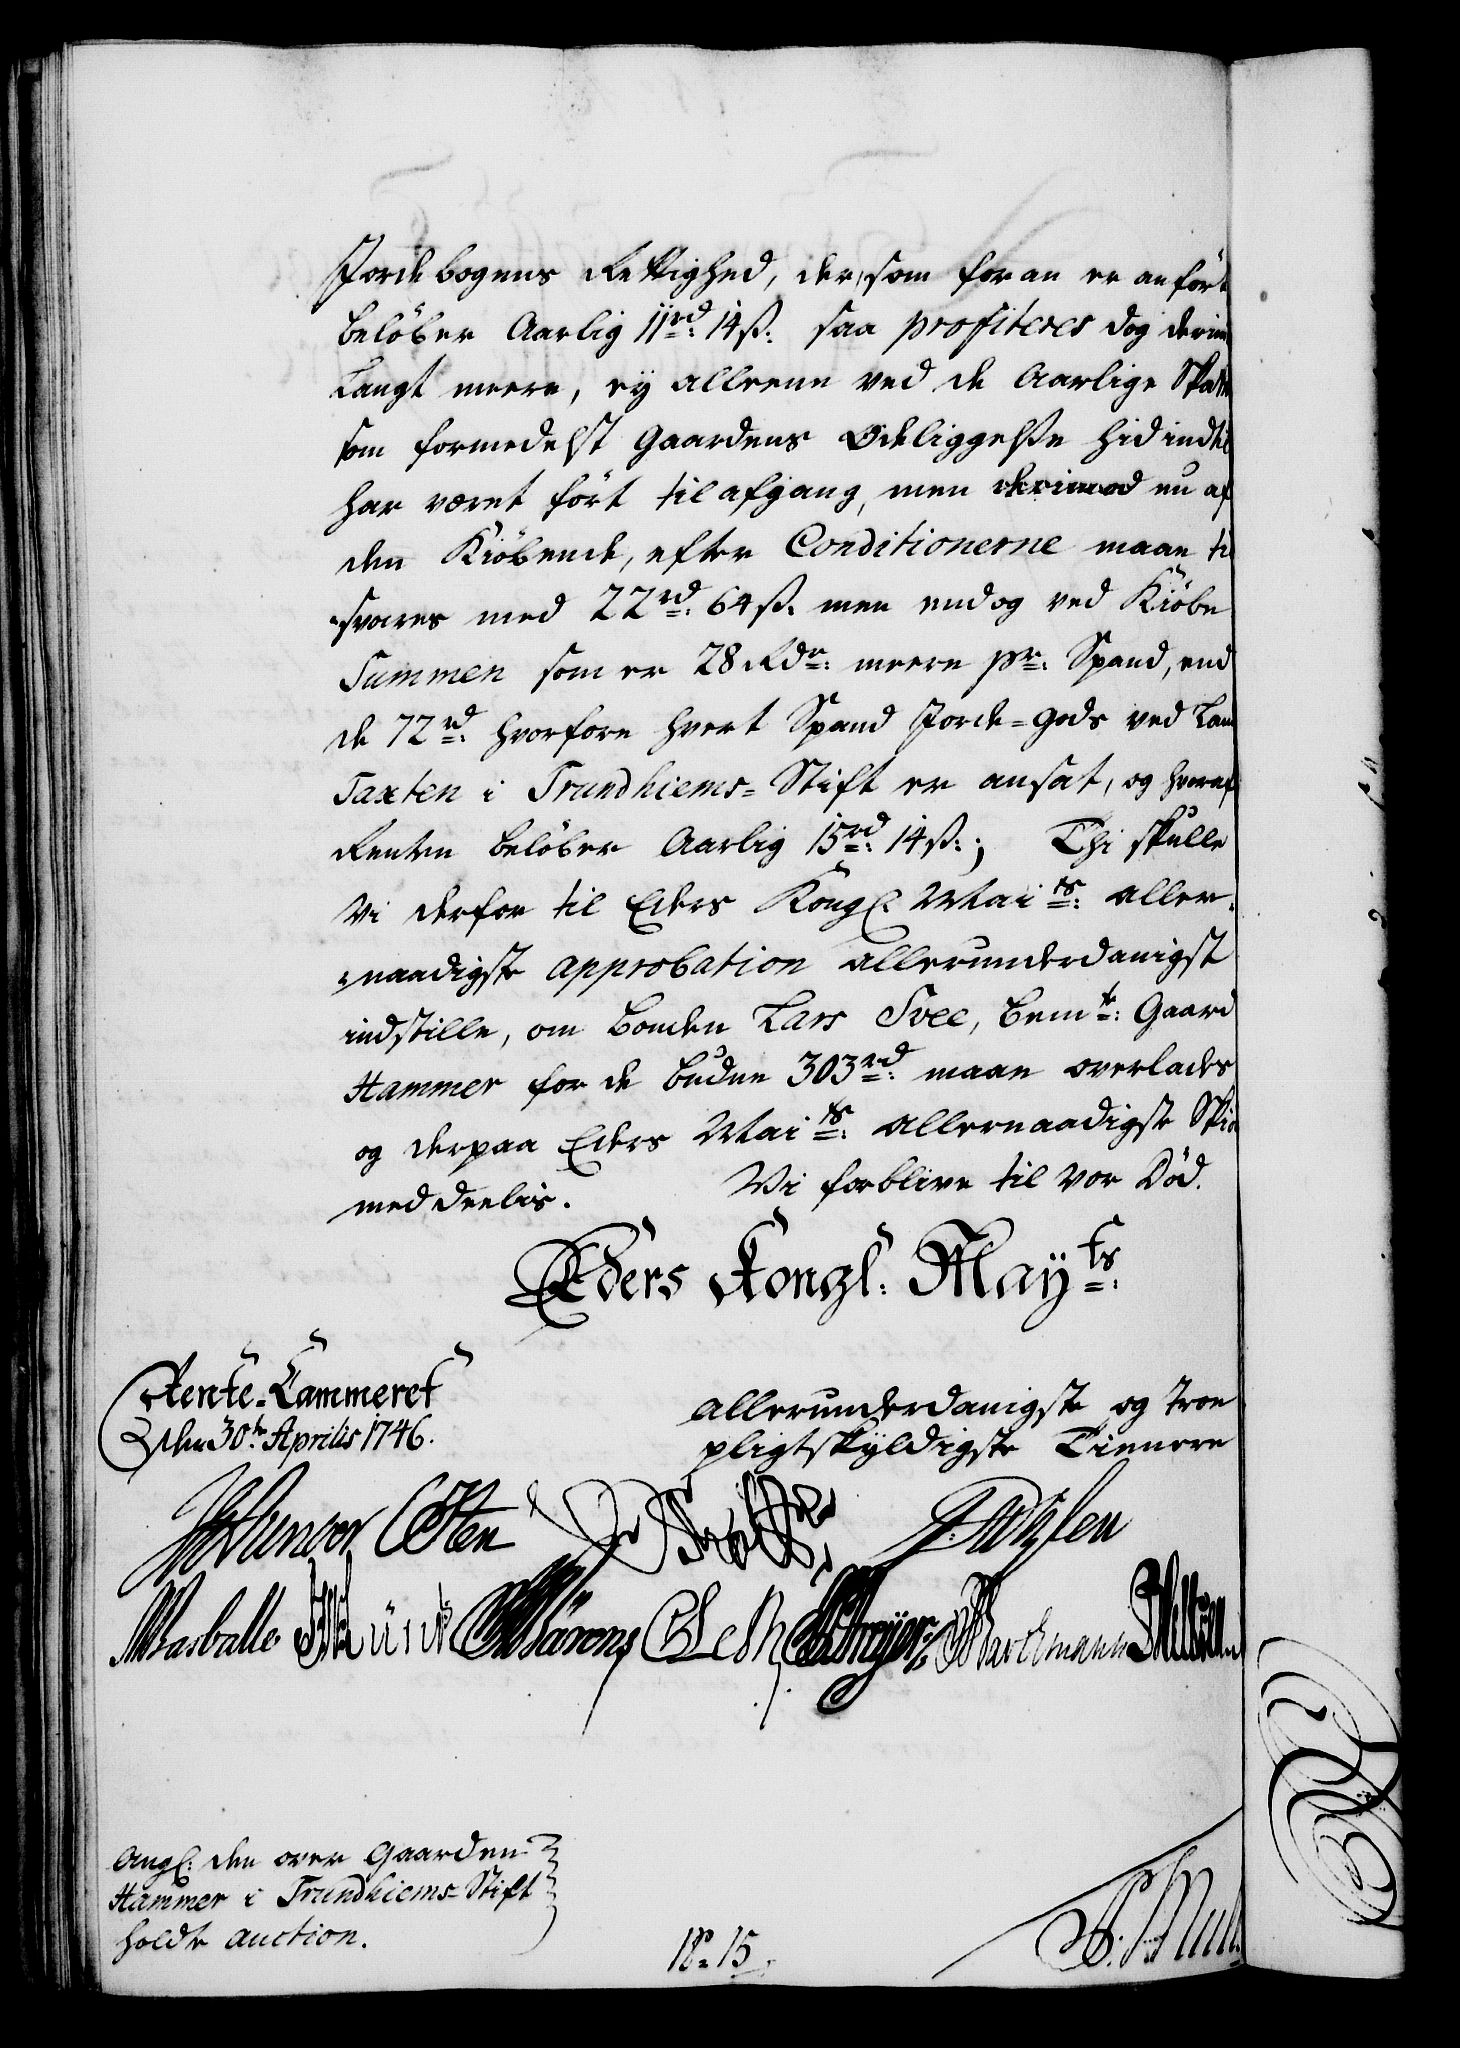 Jordebogens Rettighed, der, som foran er anført
beløber Aarlig 11 rd: 14 ß. saa profiteres dog derim
Langt meere, ey alleene ved de Aarlige Skatte
som formedelst Gaardens Ødeliggelse hid indtil
har været ført til afgang, men derimod nu af
den Kiøbende, efter Conditionerne maae til
-svares med 22 rd: 64 ß. men endog ved Kiøbe
Summen som er 28 Rdr: meere pr: Spand, end
de 72 rd: hvorfore hvert Spand Jorde-Gods ved Land
Taxten i Trundhiems-Stift er ansat, og hvoraf
Renten beløber Aarlig 15 rd: 14 ß:; Thi skulle
Vi derfor til Eders Kongl. Mai ts: aller-
-naadigste approbation allerunderdanigst
indstille, om Bonden Lars Svee, bem te: Gaard
Hammer for de budne 303 rd: maae overlades
og derpaa Eders Mai ts: allernaadigste Skiø
meddeelis. Vi forblive til vor Død.
Eders Kongl: May ts:
Rente-Cammeret
den 30te Aprilis 1746.
allerunderdanigste og troe
pligtskyldigste Tienere
Angl: den over Gaarden
Hammer i Trundhiems-Stift
holdte auction.
No 15.